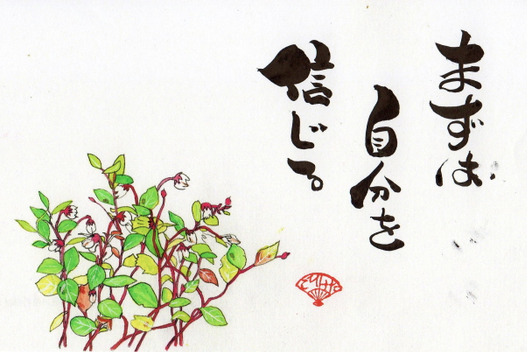 まずは
自分を
信じる